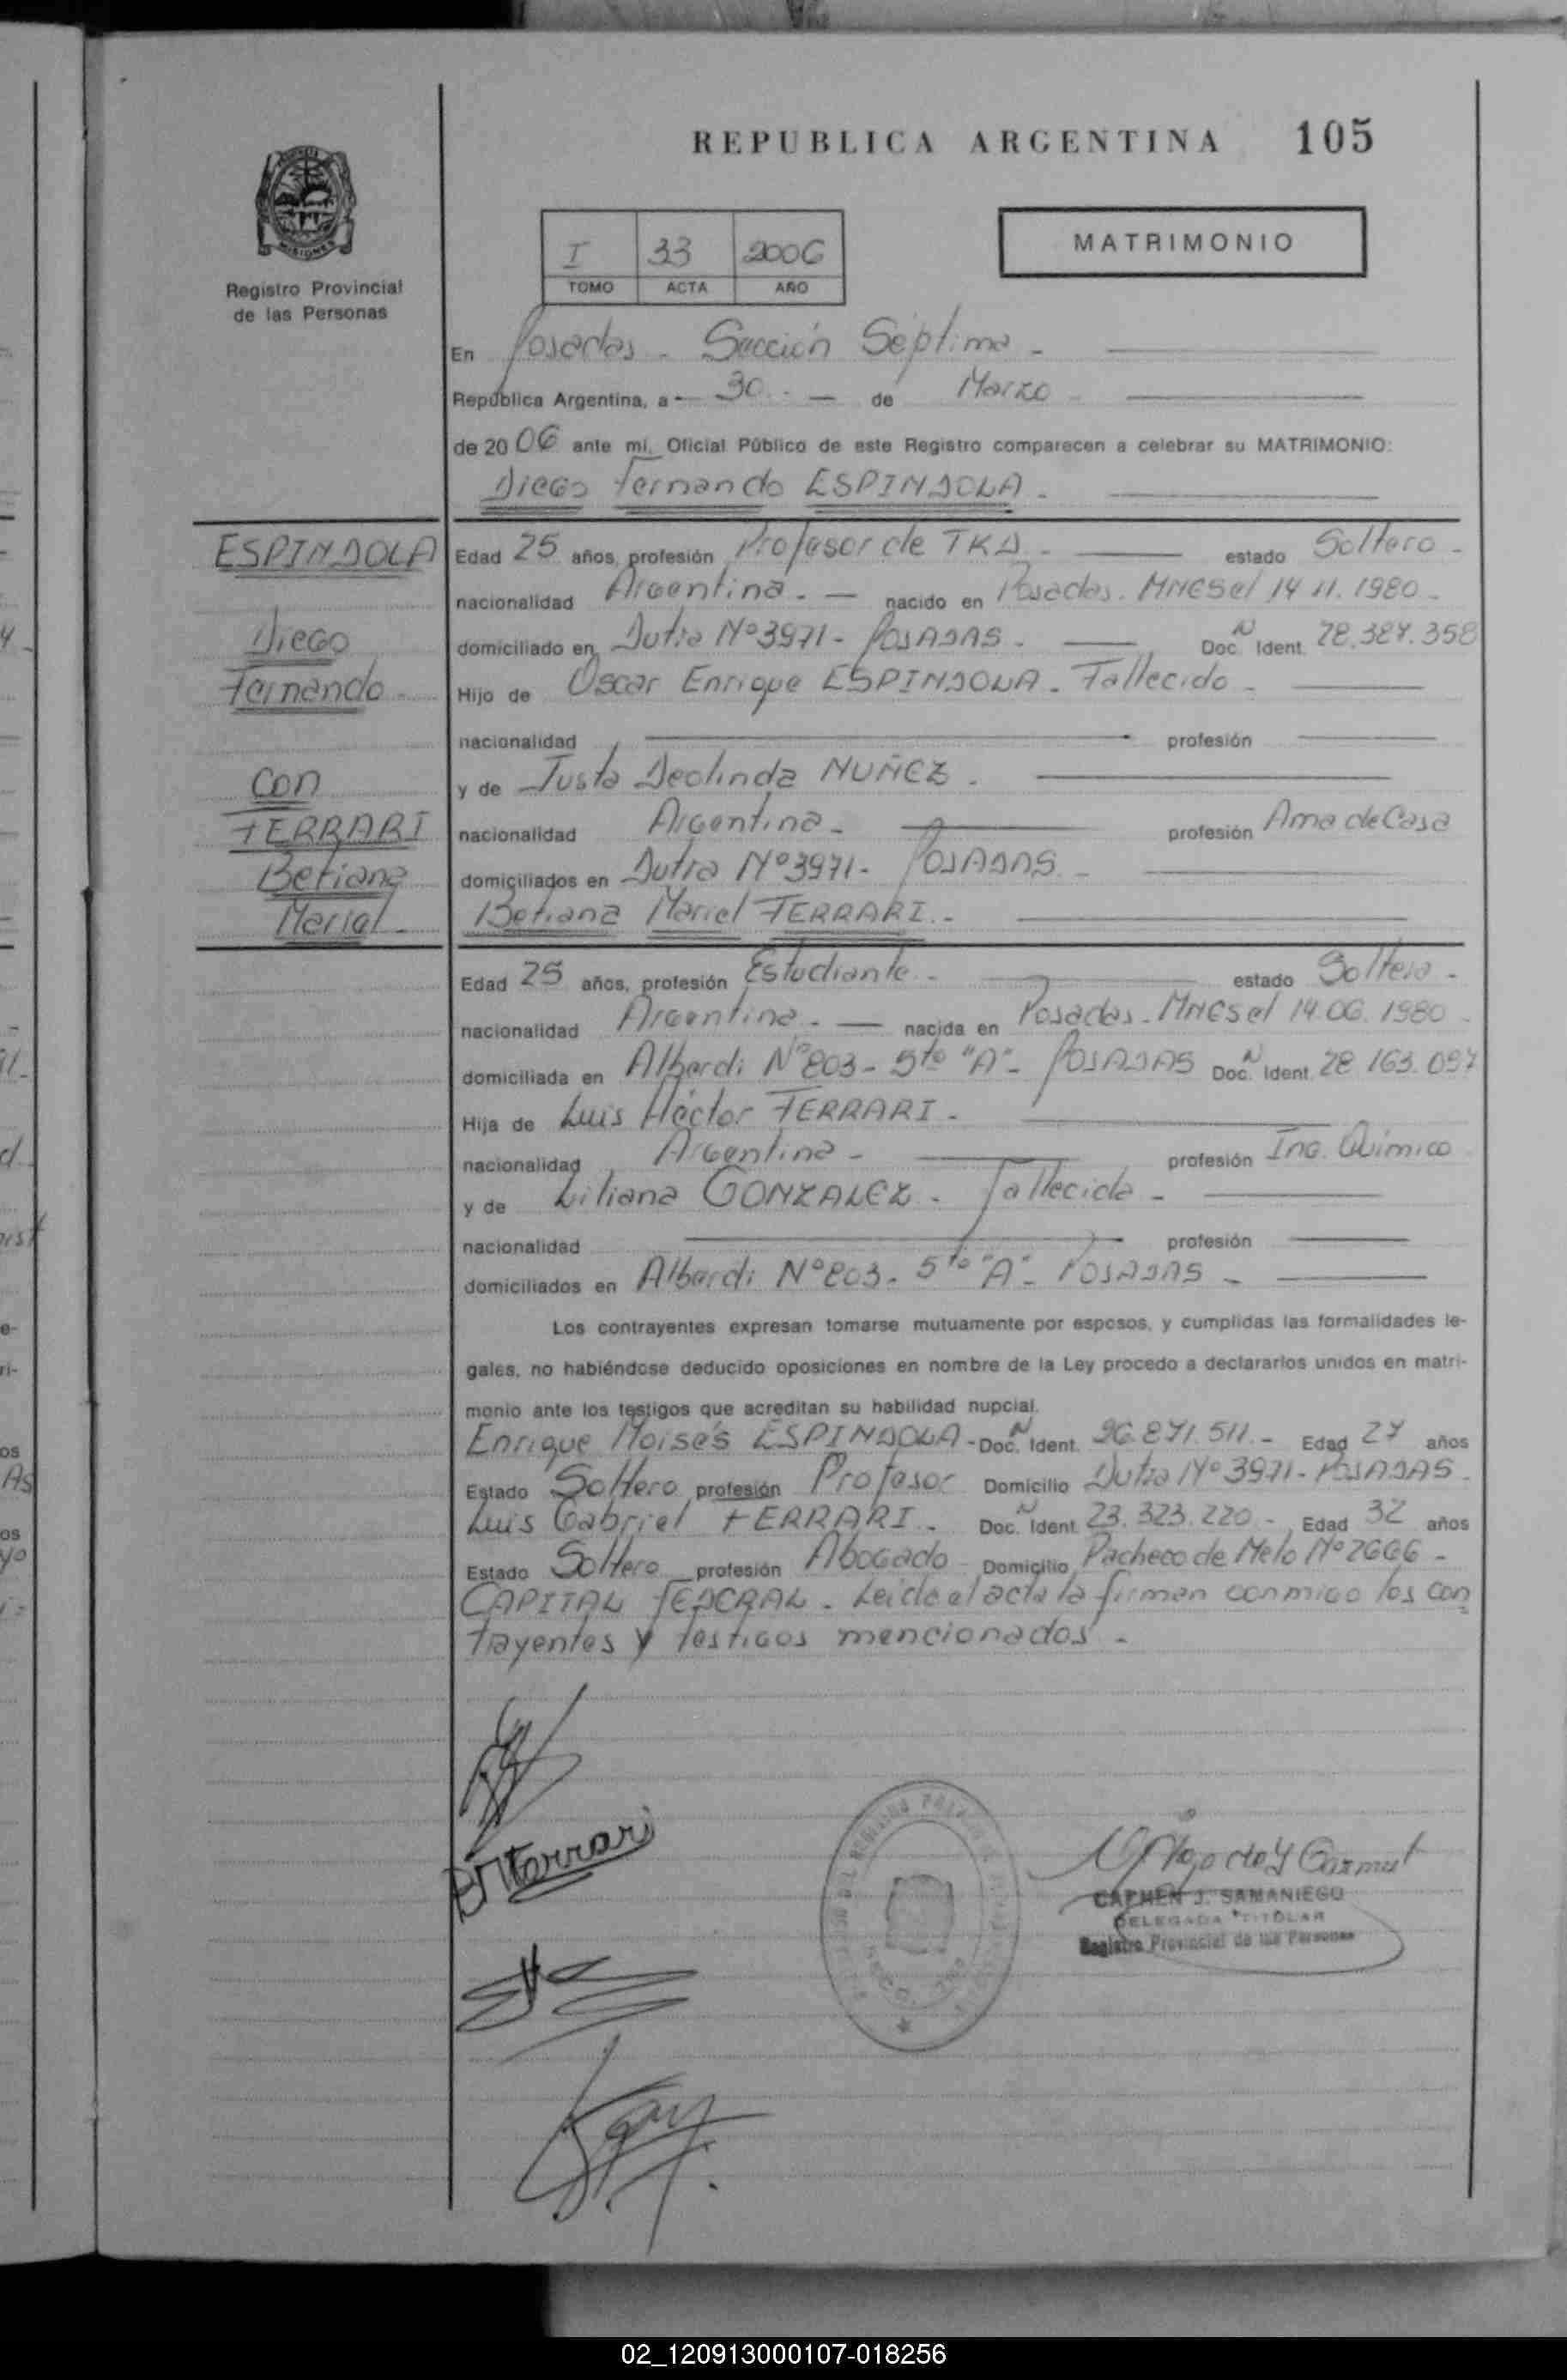 REPUBLICA ARGENTINA 105
MISIONES
Registro Provincial
de las Personas
I 33 2006
TOMO ACTA AÑO
MATRIMONIO
En Posadas - Sección Séptima -
República Argentina, a - 30 - de Marzo -
de 20 06 ante mi, Oficial Público de este Registro comparecen a celebrar su MATRIMONIO:
Diego Fernando ESPINDOLA -
ESPINDOLA
Diego
Fernando
Con
FERRARI
Betiana
Mariel
Edad 25 años, profesión Profesor de TKD - estado Soltero -
nacionalidad Argentina - nacido en Posadas. MNES el 14.11.1980 -
domiciliado en Dutra Nº 3971 - POSADAS - Doc. N Ident. 28.387.358
Hijo de Oscar Enrique ESPINDOLA - Fallecido -
nacionalidad profesión
y de Justa Deolinda NUÑEZ -
nacionalidad Argentina - profesión Ama de Casa
domiciliados en Dutra Nº 3971 - POSADAS -
Betiana Mariel FERRARI -
Edad 25 años, profesión Estudiante - estado Soltera -
nacionalidad Argentina - nacida en Posadas - MNES el 14.06.1980 -
domiciliada en Alberdi Nº 803 - 5to "A" - POSADAS Doc. N Ident. 28 163.097
Hija de Luis Héctor FERRARI -
nacionalidad Argentina - profesión Ing. Químico
y de Liliana GONZALEZ - Fallecida -
nacionalidad profesión
domiciliados en Alberdi Nº 803 - 5to "A" - POSADAS -
Los contrayentes expresan tomarse mutuamente por esposos, y cumplidas las formalidades le-
gales, no habiéndose deducido oposiciones en nombre de la Ley procedo a declararlos unidos en matri-
monio ante los testigos que acreditan su habilidad nupcial.
Enrique Moisés ESPINDOLA - Doc. N Ident. 26.871.511 - Edad 27 años
Estado Soltero profesión Profesor Domicilio Dutra Nº 3971 - POSADAS -
Luis Gabriel FERRARI - Doc. N Ident. 23.323.220 - Edad 32 años
Estado Soltero profesión Abogado - Domicilio Pacheco de Melo Nº 2666 -
CAPITAL FEDERAL - Leida el acta la firman conmigo los con
trayentes y testigos mencionados -
Ferrari
CARMEN J. SAMANIEGO
DELEGADA TITULAR
Registro Provincial de las Personas
02_120913000107-018256